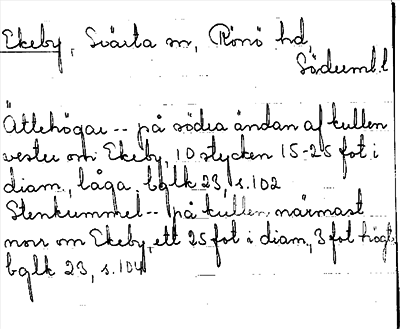 Ekeby, Svärta sn, Rönö hd,
Söderml.l
Ättehögar -- på södra ändan af kullen
vester om Ekeby, 10 stycken 15-25 fot i
diam., låga. bglk 23, s.102
Stenkummel -- på kullen närmast
norr om Ekeby, ett 25 fot i diam., 3 fot högt.
bglk 23, s.104